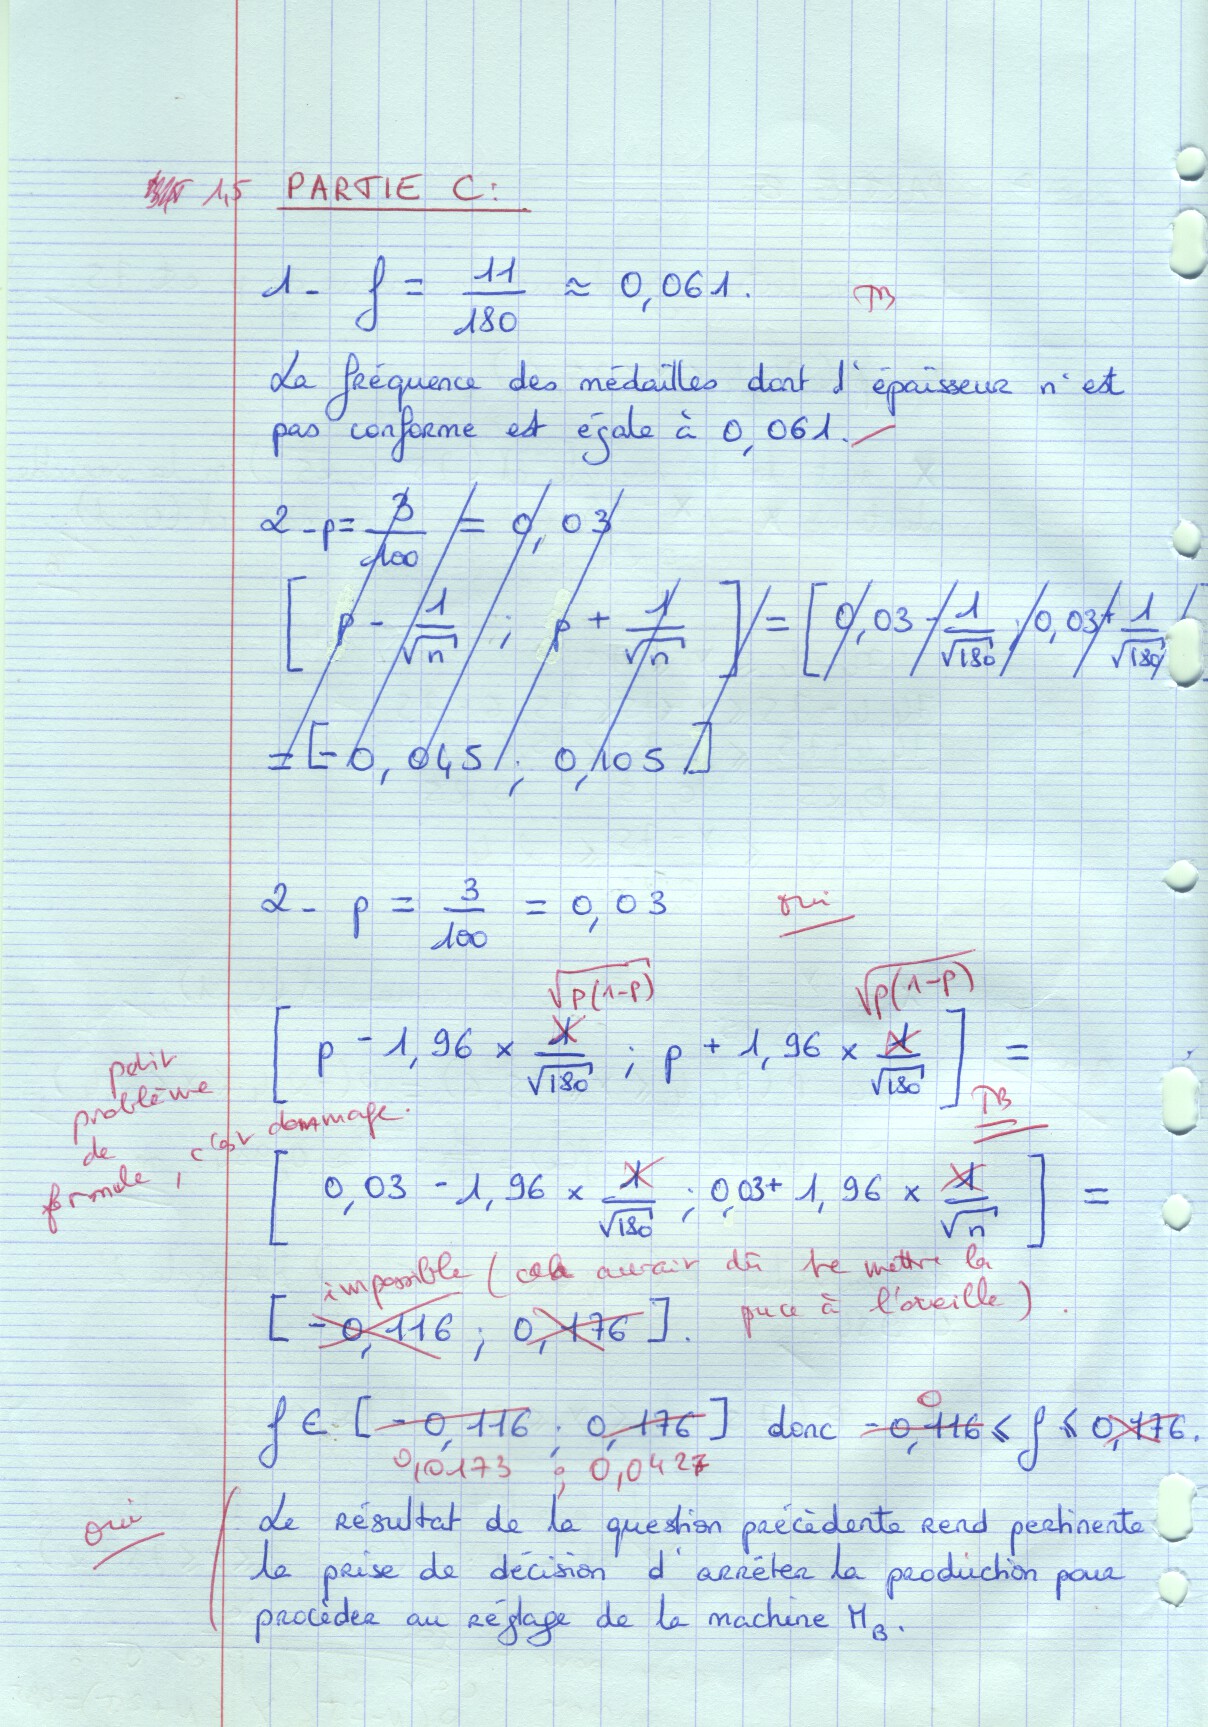 1,5 PARTIE C:
1- f = 11/180 ≈ 0,061. TB
La fréquence des médailles dont l'épaisseur n'est
pas conforme est égale à 0,061.
2-p= 3/100 = 0,03
[ p - 1/√n ; p + 1/√n ] = [ 0,03 - 1/√180 ; 0,03 + 1/√180 ]
= [-0,045 ; 0,105]
2- p = 3/100 = 0,03 oui
√p(1-p) √p(1-p)
[ p - 1,96 × 1/√180 ; p + 1,96 × 1/√180 ] =
petit
problème
de
formule, c'est dommage.
TB
[ 0,03 - 1,96 × 1/√180 ; 0,03 + 1,96 × 1/√n ] =
impossible (cela aurait dû te mettre la
puce à l'oreille).
[ -0,116 ; 0,176 ].
0
f ∈ [ -0,116 ; 0,176 ] donc -0,116 ≤ f ≤ 0,176.
0,0173 ; 0,0427
oui
Le résultat de la question précédente rend pertinente
la prise de décision d'arrêter la production pour
procéder au réglage de la machine M_B.